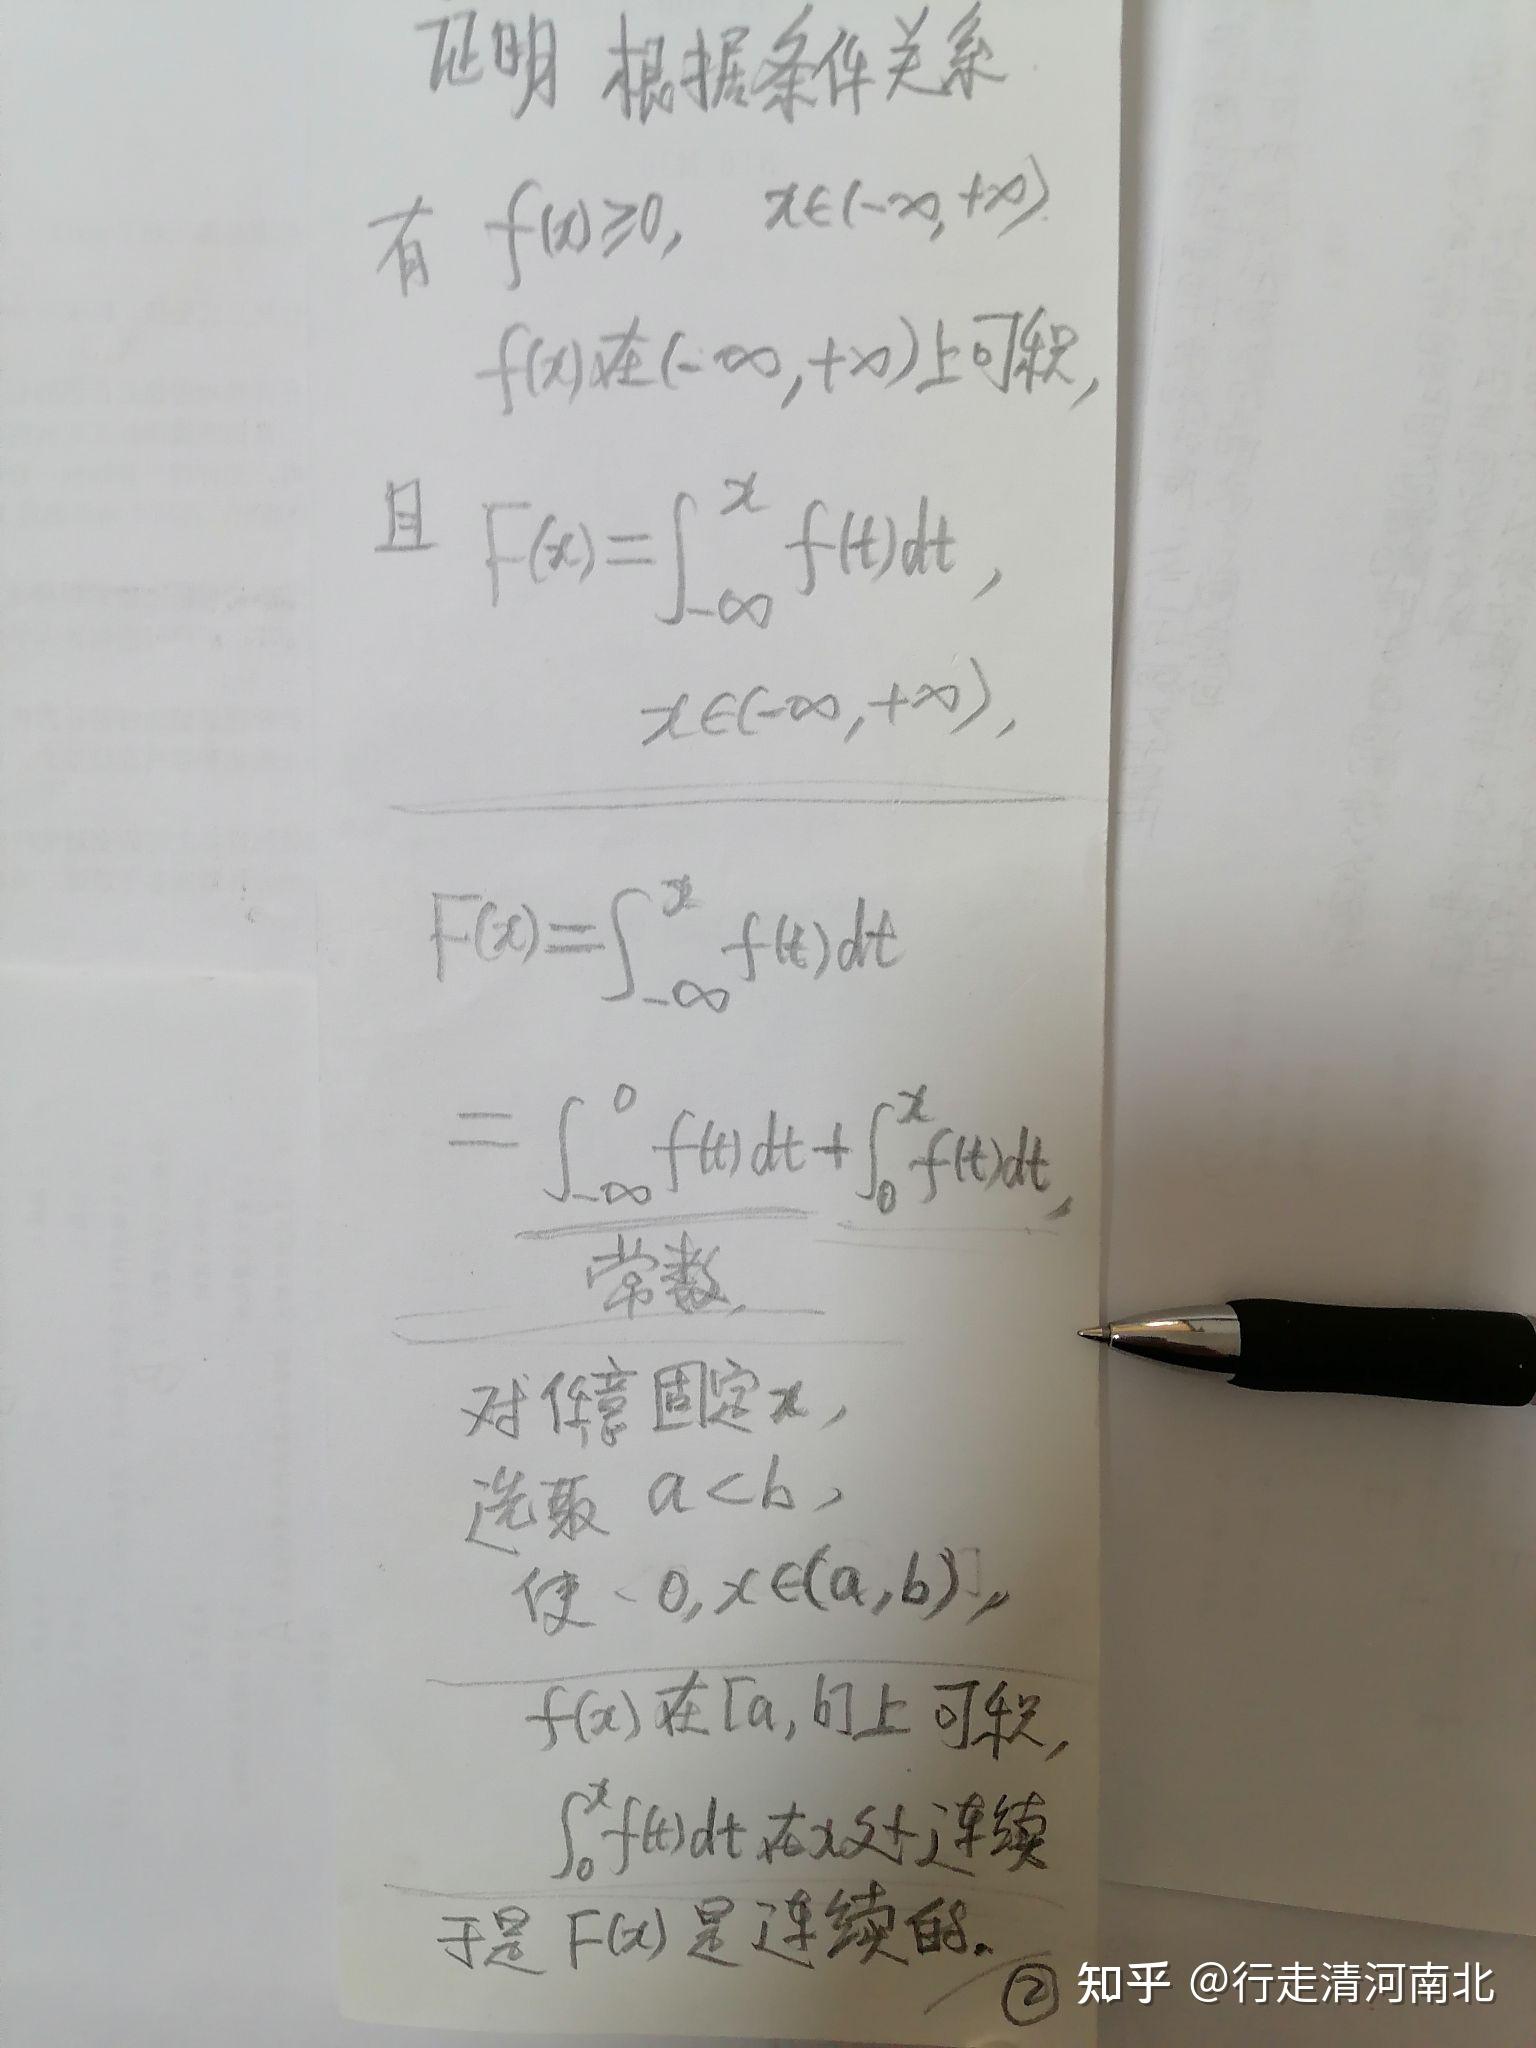 证明 根据条件关系
有 f(x)≥0, x∈(-∞,+∞)
f(x)在(-∞,+∞)上可积,
且 F(x)=∫_{-∞}^{x} f(t)dt,
x∈(-∞,+∞),
F(x)=∫_{-∞}^{x} f(t)dt
=∫_{-∞}^{0} f(t)dt+∫_{0}^{x} f(t)dt,
常数,
对任意固定x,
选取 a<b,
使 0,x∈(a,b),
f(x)在[a,b]上可积,
∫_{0}^{x} f(t)dt在x处连续
于是 F(x)是连续的.
②
知乎 @行走清河南北